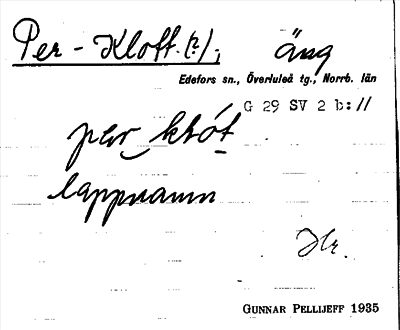 Per-Kloft. (?), äng
Edefors sn., Överluleå tg., Norrb. län
G 29 SV 2 b:11
lappnamn
Hr.
GUNNAR PELLIJEFF 1935